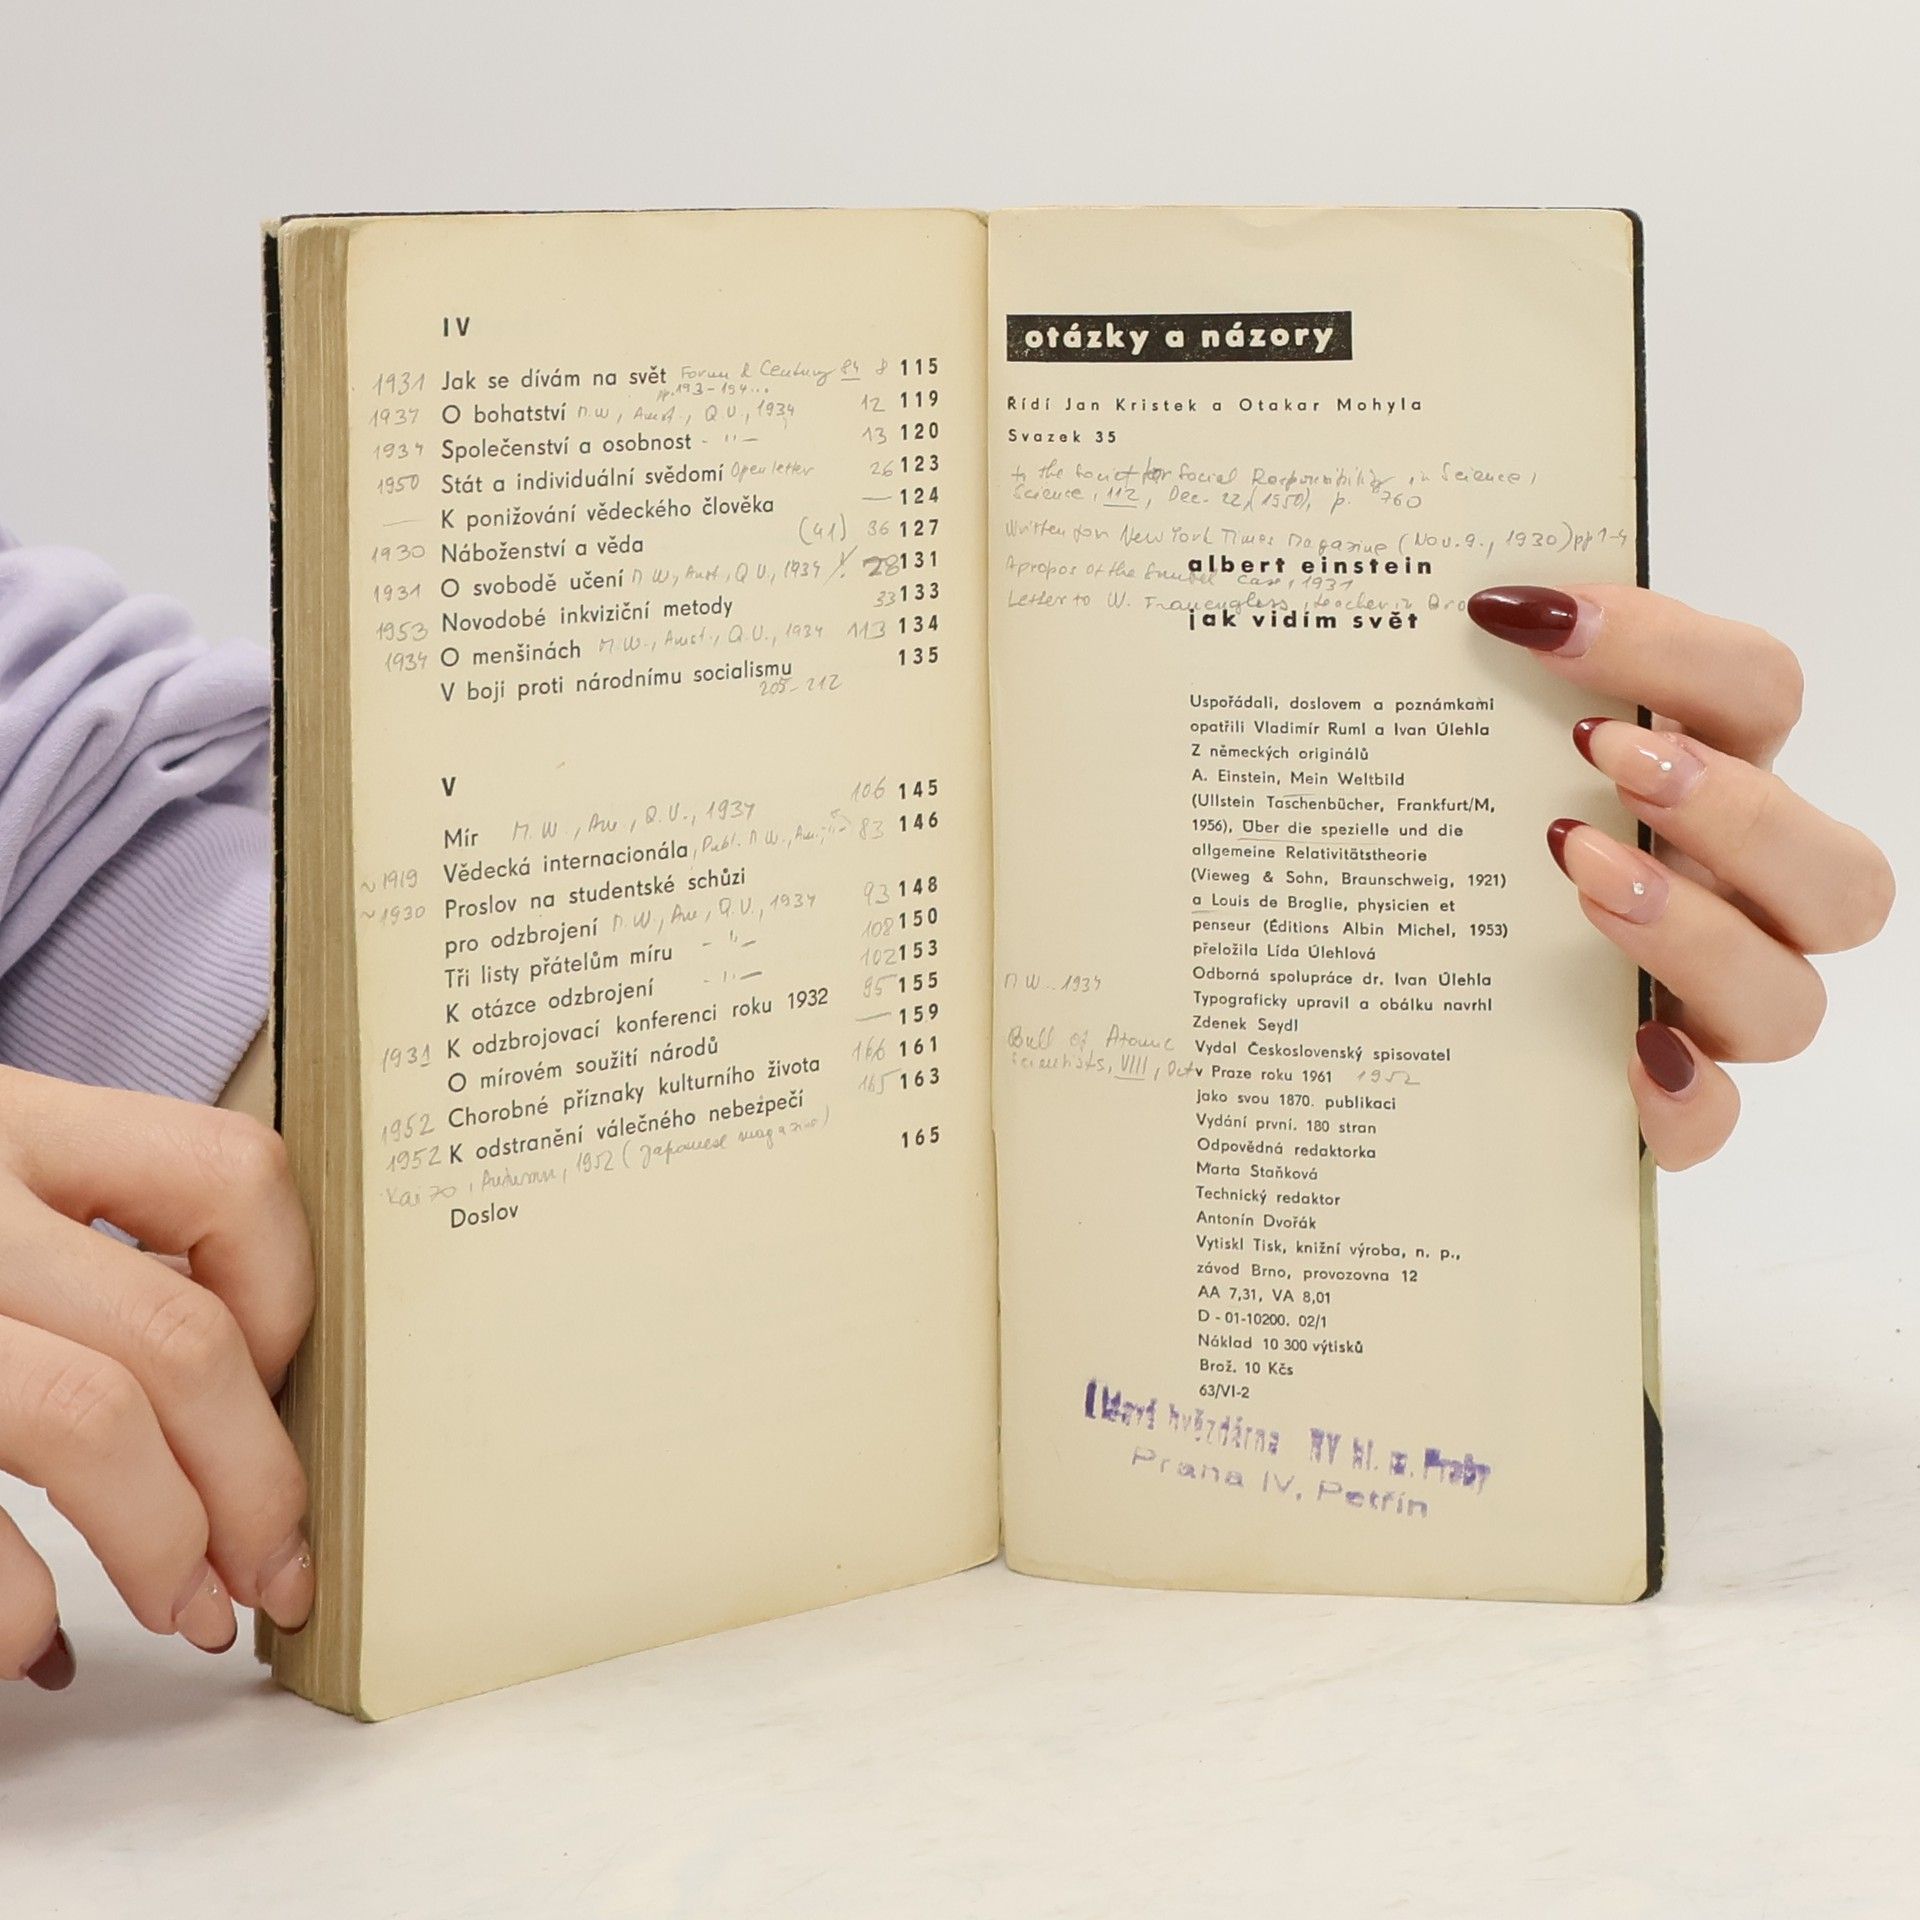 IV
1931 Jak se dívám na svět Forum & Century 84 8 115
pp. 193-194...
1934 O bohatství M.W., Amst., Q.V., 1934 12 119
1934 Společenství a osobnost - " - 13 120
1950 Stát a individuální svědomí Open letter 26 123
— K ponižování vědeckého člověka — 124
1930 Náboženství a věda (41) 36 127
1931 O svobodě učení M.W., Amst., Q.V., 1934 28 131
1953 Novodobé inkviziční metody 33 133
1934 O menšinách M.W., Amst., Q.V., 1934 113 134
V boji proti národnímu socialismu 135
205-212
V
Mír M.W., Am., Q.V., 1934 106 145
~1919 Vědecká internacionála, Publ. M.W., Am., 83 146
~1930 Proslov na studentské schůzi
pro odzbrojení M.W., Am., Q.V., 1934 93 148
Tři listy přátelům míru - " - 108 150
K otázce odzbrojení - " - 102 153
1931 K odzbrojovací konferenci roku 1932 95 155
O mírovém soužití národů — 159
1952 Chorobné příznaky kulturního života 166 161
1952 K odstranění válečného nebezpečí 165 163
Kaizo, Autumn, 1952 (Japanese magazine)
Doslov 165
otázky a názory
Řídí Jan Kristek a Otakar Mohyla
Svazek 35
to the Society for Social Responsibility in Science,
Science, 112, Dec. 22, (1950), p. 760
Written for New York Times Magazine (Nov. 9., 1930) pp 1-4
albert einstein
Apropos of the Gumbel case, 1931
Letter to W. Frauenglass, teacher in Bro
jak vidím svět
Uspořádali, doslovem a poznámkami
opatřili Vladimír Ruml a Ivan Úlehla
Z německých originálů
A. Einstein, Mein Weltbild
(Ullstein Taschenbücher, Frankfurt/M,
1956), Über die spezielle und die
allgemeine Relativitätstheorie
(Vieweg & Sohn, Braunschweig, 1921)
a Louis de Broglie, physicien et
penseur (Éditions Albin Michel, 1953)
přeložila Lída Úlehlová
Odborná spolupráce dr. Ivan Úlehla
M.W. 1934
Typograficky upravil a obálku navrhl
Zdenek Seydl
Bull of Atomic
Vydal Československý spisovatel
Scientists, VIII, Oct
v Praze roku 1961 1952
jako svou 1870. publikaci
Vydání první. 180 stran
Odpovědná redaktorka
Marta Staňková
Technický redaktor
Antonín Dvořák
Vytiskl Tisk, knižní výroba, n. p.,
závod Brno, provozovna 12
AA 7,31, VA 8,01
D - 01-10200. 02/1
Náklad 10 300 výtisků
Brož. 10 Kčs
63/VI-2
hvězdárna NV hl. m. Prahy
Praha IV, Petřín